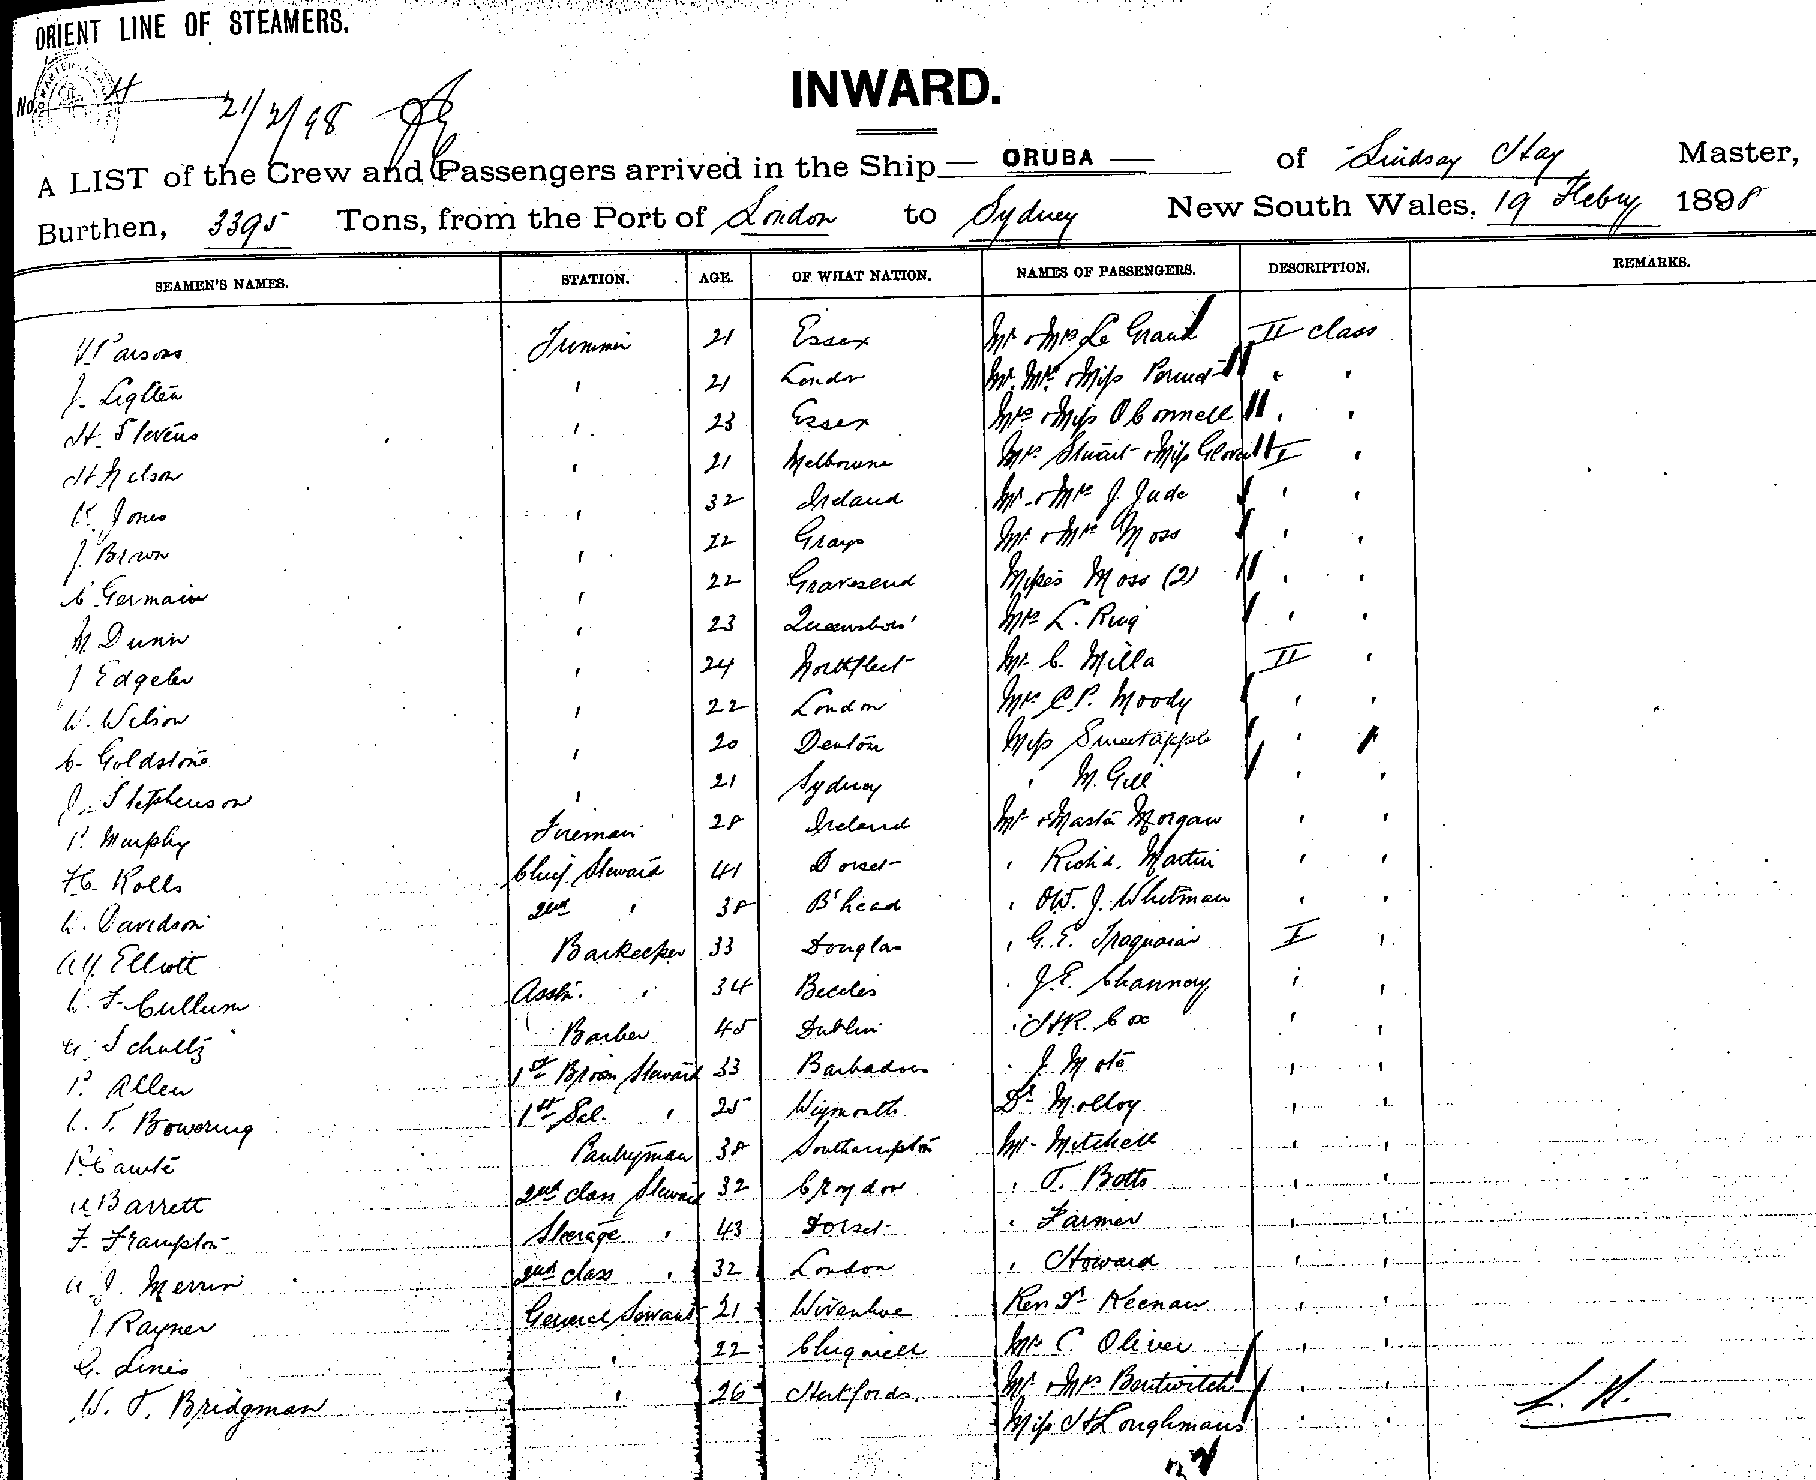 ORIENT LINE OF STEAMERS.
No. 4
21/2/98
INWARD.
A LIST of the Crew and Passengers arrived in the Ship — ORUBA — of Lindsay Hay Master,
Burthen, 3395 Tons, from the Port of London to Sydney New South Wales, 19 Febry 1898
SEAMEN'S NAMES. STATION. AGE. OF WHAT NATION. NAMES OF PASSENGERS. DESCRIPTION. REMARKS.
V. Parsons Trimmer 21 Essex Mr & Mrs Le Grand II class
J. ' 21 London Mr. Mrs. & Miss ' '
H. Stevens ' 23 Essex Mrs & Miss O'Connell ' '
H Nelson ' 21 Melbourne Mrs Stuart & Miss Glover I '
Jones ' 32 Ireland Mr & Mrs J. Jude ' '
J. Brown ' 22 Grays Mr & Mrs Moss ' '
C. Germain ' 22 Gravesend Misses Moss (2) ' '
M. Dunn ' 23 Queensboro' Mrs L. Ring ' '
J Edgeler ' 24 Northfleet Mr C. Milla II '
W. Wilson ' 22 London Mrs C.P. Moody ' '
C. Goldstone ' 20 Denton Miss Sweetapple ' '
J. Stephenson ' 21 Sydney ' M. Gill ' '
P. Murphy Fireman 28 Ireland Mr & Master Morgan ' '
F.C. Rolls Chief Steward 41 Dorset ' Richd. Martin ' '
Davidson 2nd ' 38 B'head ' W. J. Whitman ' '
Elliott Barkeeper 33 Douglas ' G.E. Traquair I '
F. Cullum Asstn. ' 34 Beccles ' J.E. Channoy ' '
Schultz Barber 45 Dublin ' H.R. Cox ' '
P. Allen 1st Bd'room Steward 33 Barbadoes ' J. Mote ' '
T. Bowering 1st Sal. ' 25 Weymouth Dr Molloy ' '
Pantryman 38 Southampton Mr Mitchell ' '
Barrett 2nd class Steward 32 Croydon ' T. Botts ' '
F. Frampton Steerage ' 43 Dorset ' Farmer ' '
J. Merrin 2nd class ' 32 London ' Howard ' '
J Rayner General Servant 21 Wivenhoe Rev Dr Keenan ' '
G. Lines ' 22 Chigwell Mrs C Oliver ' '
W. T. Bridgman ' 26 Hertfords. Mr & Mrs Bentwitch ' '
Miss H Loughmans ' '
L. H.